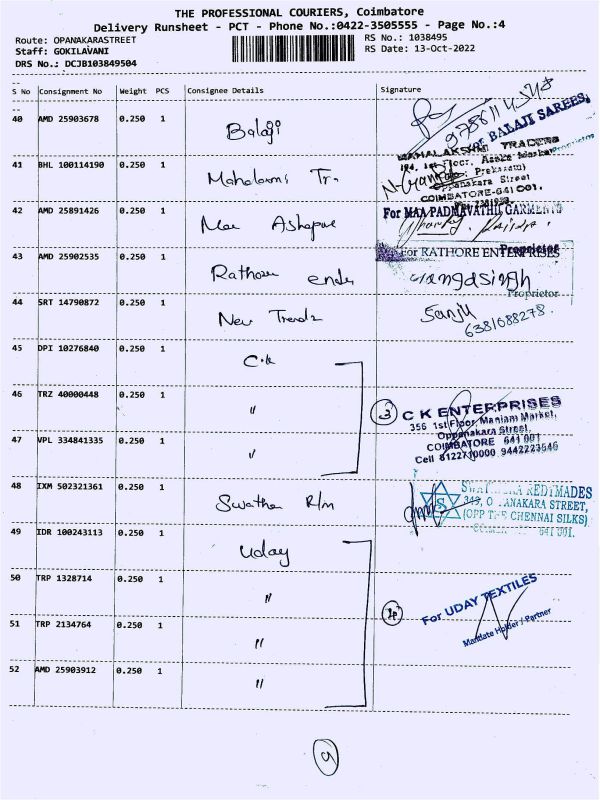 THE PROFESSIONAL COURIERS, Coimbatore
Delivery Runsheet - PCT - Phone No.:0422-3505555 - Page No.:4
Route: OPANAKARASTREET
RS No.: 1038495
Staff: GOKILAVANI
RS Date: 13-Oct-2022
DRS No.: DCJB103849504
S No Consignment No Weight PCS Consignee Details Signature
40 AMD 25903678 0.250 1 Balaji
For BALAJI SAREES,
Proprietor
41 BHL 100114190 0.250 1 Mahalaxmi Tr.
MAHALAKSHMI TRADERS
COIMBATORE-641 001.
42 AMD 25891426 0.250 1 Maa Ashapure
For MAA PADMAVATHI GARMENTS
Proprietor
43 AMD 25902535 0.250 1 Rathore
For RATHORE ENTERPRISES
Proprietor
44 SRT 14790872 0.250 1 New Trendz
Sanju
6381088278.
45 DPI 10276840 0.250 1 C.K
46 TRZ 40000448 0.250 1 "
3
C K ENTERPRISES
356 1st Floor, Maniam Market,
Oppanakara Street,
COIMBATORE 641 001
Cell 8122710000 9442223646
47 VPL 334841335 0.250 1 "
48 IXM 502321361 0.250 1 Swathe R/m
REDIMADES
(OPP THE CHENNAI SILKS)
641 001.
49 IDR 100243113 0.250 1 Uday
50 TRP 1328714 0.250 1 "
4
For UDAY TEXTILES
Mandate Holder / Partner
51 TRP 2134764 0.250 1 "
52 AMD 25903912 0.250 1 "
9